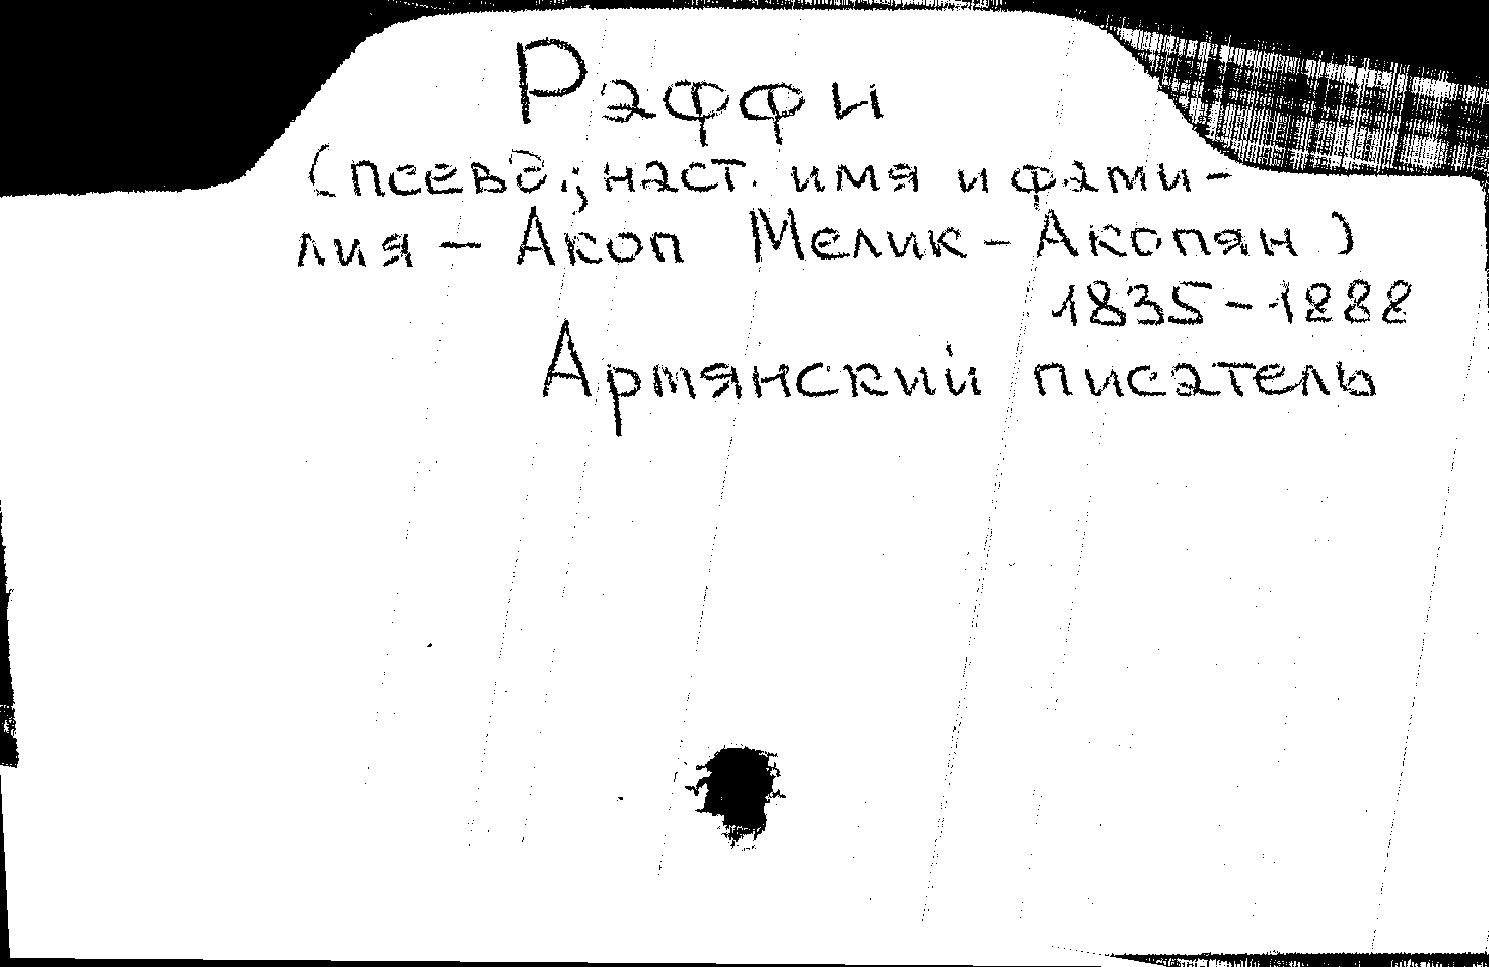 Раффи
(псевд.; наст. имя и фами-
лия - Акоп Мелик-Акопян)
1835-1888
Армянский писатель